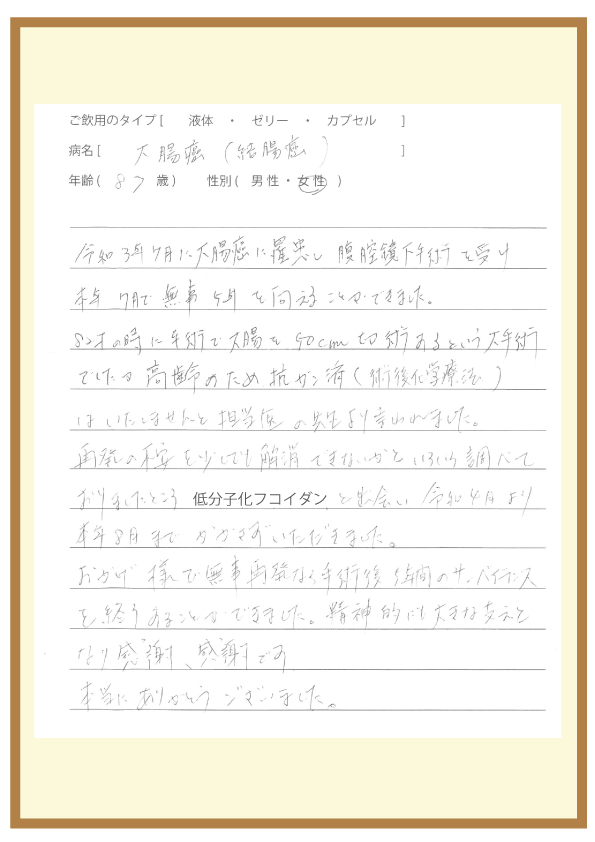 ご飲用のタイプ [ 液体 ・ ゼリー ・ カプセル ]
病名 [ 大腸癌 (結腸癌) ]
年齢 ( 87 歳 ) 性別 ( 男性 ・ 女性 )
令和3年7月に大腸癌に罹患し 腹腔鏡下手術を受け
本年 7月で 無事 5年を向えることができました。
82才の時に手術で大腸を50cm切術あるという大手術
でしたが高齢のため抗ガン済(術後化学療法)
はいたしませんと担当医の先生より言われました。
再発の不安を少しでも解消できないかといろいろ調べて
おりましたところ 低分子化フコイダン と出会い 令和4月より
本年8月までかかさずいただきました。
おかげ様で無事再発なく手術後5年間のサーバイバンス
を終うることができました。精神的にも大きな支えと
なり感謝、感謝です
本当にありがとうございました。